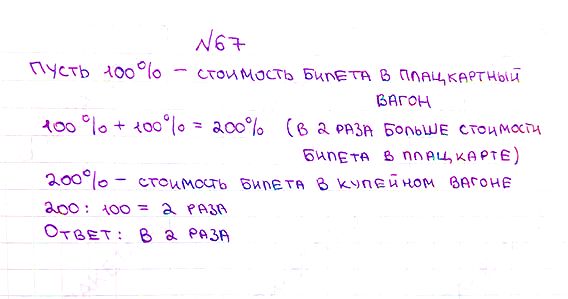 №67
Пусть 100% – стоимость билета в плацкартный
вагон
100% + 100% = 200% (в 2 раза больше стоимости
билета в плацкарте)
200% – стоимость билета в купейном вагоне
200 : 100 = 2 раза
Ответ: в 2 раза